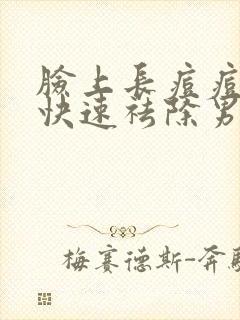 臉上長痘痘
快速祛除男
梅赛德斯-奔馳